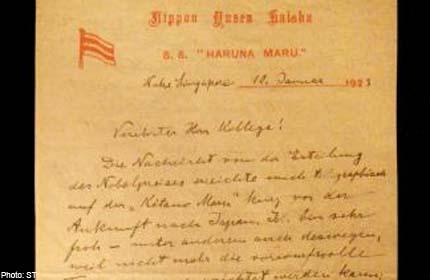 Nippon Yusen Kaisha
S. S. "HARUNA MARU."
Nahe Singapore 10. Januar 1923
Verehrter Herr Kollege!
Die Nachricht von der Erteilung
des Nobelpreises erreichte mich telegraphisch
auf der „Kitano Maru" kurz vor der
Ankunft nach Japan. Ich bin sehr
froh – unter anderem auch deswegen,
weil nicht mehr die vorwurfsvolle
werden kann:
Photo: ST